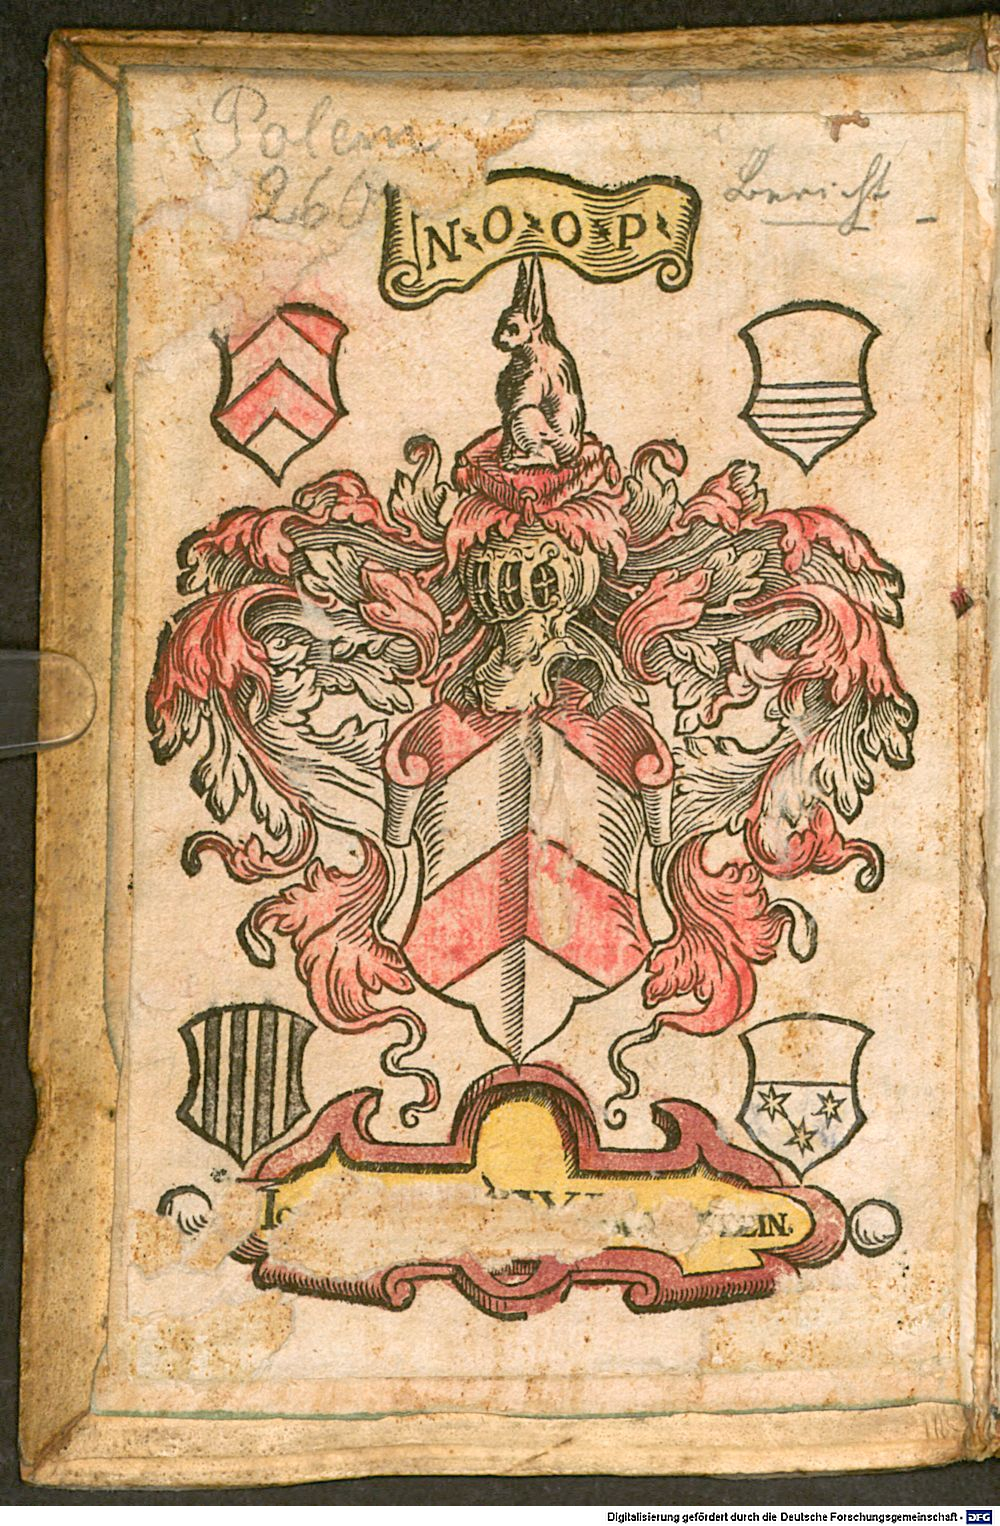 Polem
260
Bericht
N·O·O·P·
STEIN.
Digitalisierung gefördert durch die Deutsche Forschungsgemeinschaft - DFG